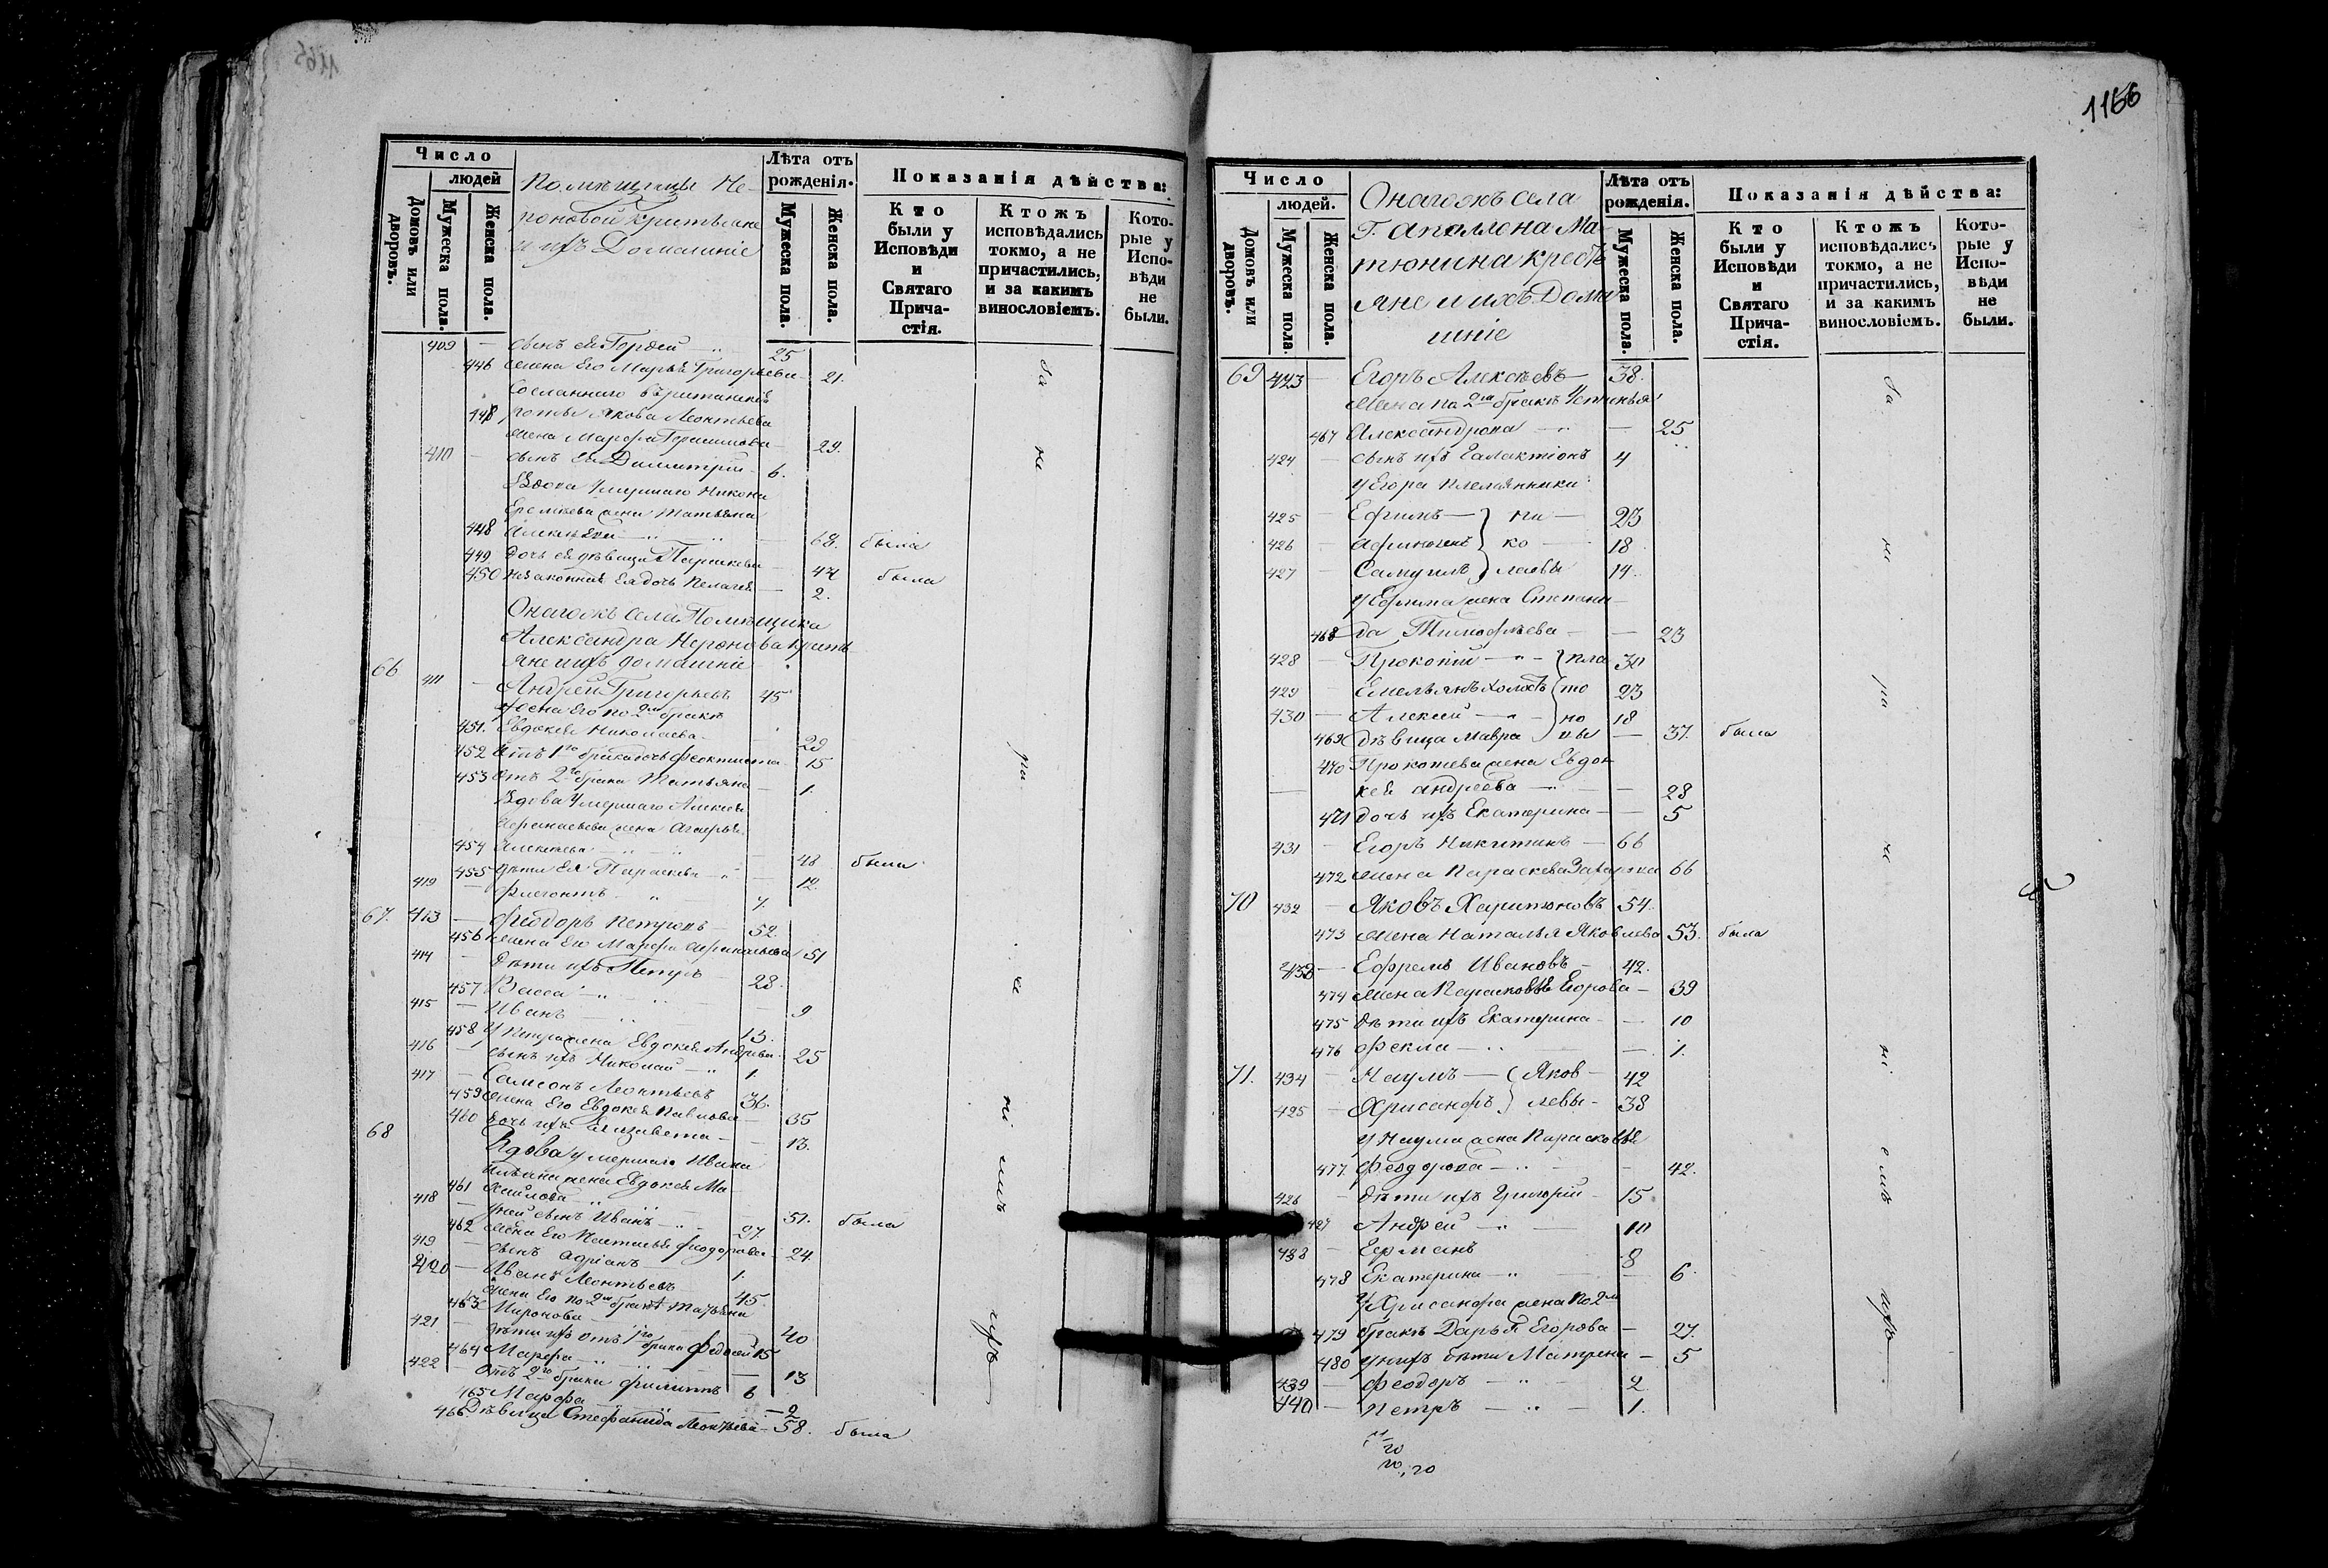 1165
Число
людей
Домовъ или дворовъ.
Мужеска пола.
Женска пола.
Помѣщицы Не-
роновой Кристьяне
и ихъ Домашніе
Лѣта отъ рожденія.
Мужеска пола.
Женска пола.
Показанія дѣйства:
Кто были у Исповѣди и Святаго Причастія.
Ктожъ исповѣдались токмо, а не причастились, и за какимъ винословіемъ.
Которые у Исповѣди не были.
409 — сынъ ея Гордей — 25
446 жена его Марья Григорьева — 21.
Сосланнаго въ
роты Якова Леонтьева
жена Марфа Герасимова — 29.
410 — сынъ ея Димитрій — 6.
Вдова умершаго Никона
жена Татьяна
448 Алексѣева — 68. была
449 Дочь ея дѣвица Параскева — 47 была
450 незаконная ея дочь Пелагея — 2.
Онагожъ села Помѣщика
Александра Неронова кристь-
яне ихъ домашніе
66 411 — Андрей Григорьевъ 45
жена его по 2мъ бракѣ
451. Евдокея Николаева — 29
452 отъ 1го брака дочь Феоктиста 15
453 отъ 2го брака Татьяна — 1.
Вдова умершаго Алексея
Афанасьева жена Агафья
454 Алексѣева — 48 была
455 Дѣти ея Параскева — 12.
419 — Флегонтъ — 7.
67. 413 — Феодоръ Петровъ — 52.
456 жена его Марфа Афанасьева 51
414 — дѣти ихъ Петръ — 28.
457 Васса — 9
415 — Иванъ — 13.
458 У Петра жена Евдокея Андреева 25
416 — сынъ ихъ Николай — 1.
417 — Самсонъ Леонтьевъ 36.
459 жена Его Евдокея Павлова — 35
460 дочь ихъ Елизавета — 13.
68 Вдова умершаго Ивана
жена Евдокея Ма-
461 хайлова — 51. была
418 — у ней сынъ Иванъ — 27.
462 жена Его Наталья Феодорова 24.
419 сынъ Адріанъ 1.
420 — Иванъ Леонтьевъ 45.
жена Его по 2мъ бракѣ Татьяна
463 Миронова — 40
421 — дѣти ихъ отъ 1го брака Федосей 15
464 Марфа — 13
422 — отъ 2го брака Филиппъ 6
465 Марфа — 2
466 Дѣвица Стефанида Леонтьева — 58. была
За не ра че ні емъ ихъ
1166
Число
людей.
Домовъ или дворовъ.
Мужеска пола.
Женска пола.
Онагожъ села
Г. Апаллона Ма-
тюнина кресть-
яне и ихъ Дома-
шніе
Лѣта отъ рожденія.
Мужеска пола.
Женска пола.
Показанія дѣйства:
Кто были у Исповѣди и Святаго Причастія.
Ктожъ исповѣдались токмо, а не причастились, и за какимъ винословіемъ.
Которые у Исповѣди не были.
69 423 — Егоръ Алексѣевъ — 38.
жена по 2мъ бракѣ Устинья
467 Александрова — 25
424 — сынъ ихъ Галактіонъ 4
У Егора племянники
425 — Ефимъ — } Ни — 23
426 — Афиногенъ } ко — 18
427 — Самуилъ } лаевы 14.
у Ефима жена Степани-
468 да Тимофѣева — 23
428 — Прокопій — } Пла 30
429 — Емельянъ холостъ } то 23
430 — Алексей — } но 18
469 дѣвица Мавра } вы — 37. была
470 Прокопева жена Евдо-
кея Андреева — 28
471 дочь ихъ Екатерина — 5
431 — Егоръ Никитинъ — 66
472 жена Параскева Захарова 66
70 432 — Яковъ Харитоновъ 54.
473 жена Наталья Яковлева 53. была
433 — Ефремъ Ивановъ — 42.
474 жена Парасковья Егорова — 39
475 дѣти ихъ Екатерина — 10
476 Фекла — 1.
71. 434 — Наумъ — } Яков- 42
425 — Хрисанфъ } левы — 38
у Наума жена Парасковья
477 Феодорова — 42.
426 — дѣти ихъ Григорій — 15
427 Андрей — 10
438 — Германъ 8
478 Екатерина — 6.
у Хрисанфа жена по 2мъ
479 бракѣ Дарья Егорова — 27.
480 у нихъ дѣти Матрена — 5
439 — Феодоръ — 2
440 — Петръ — 1.
За не ра че ні емъ ихъ